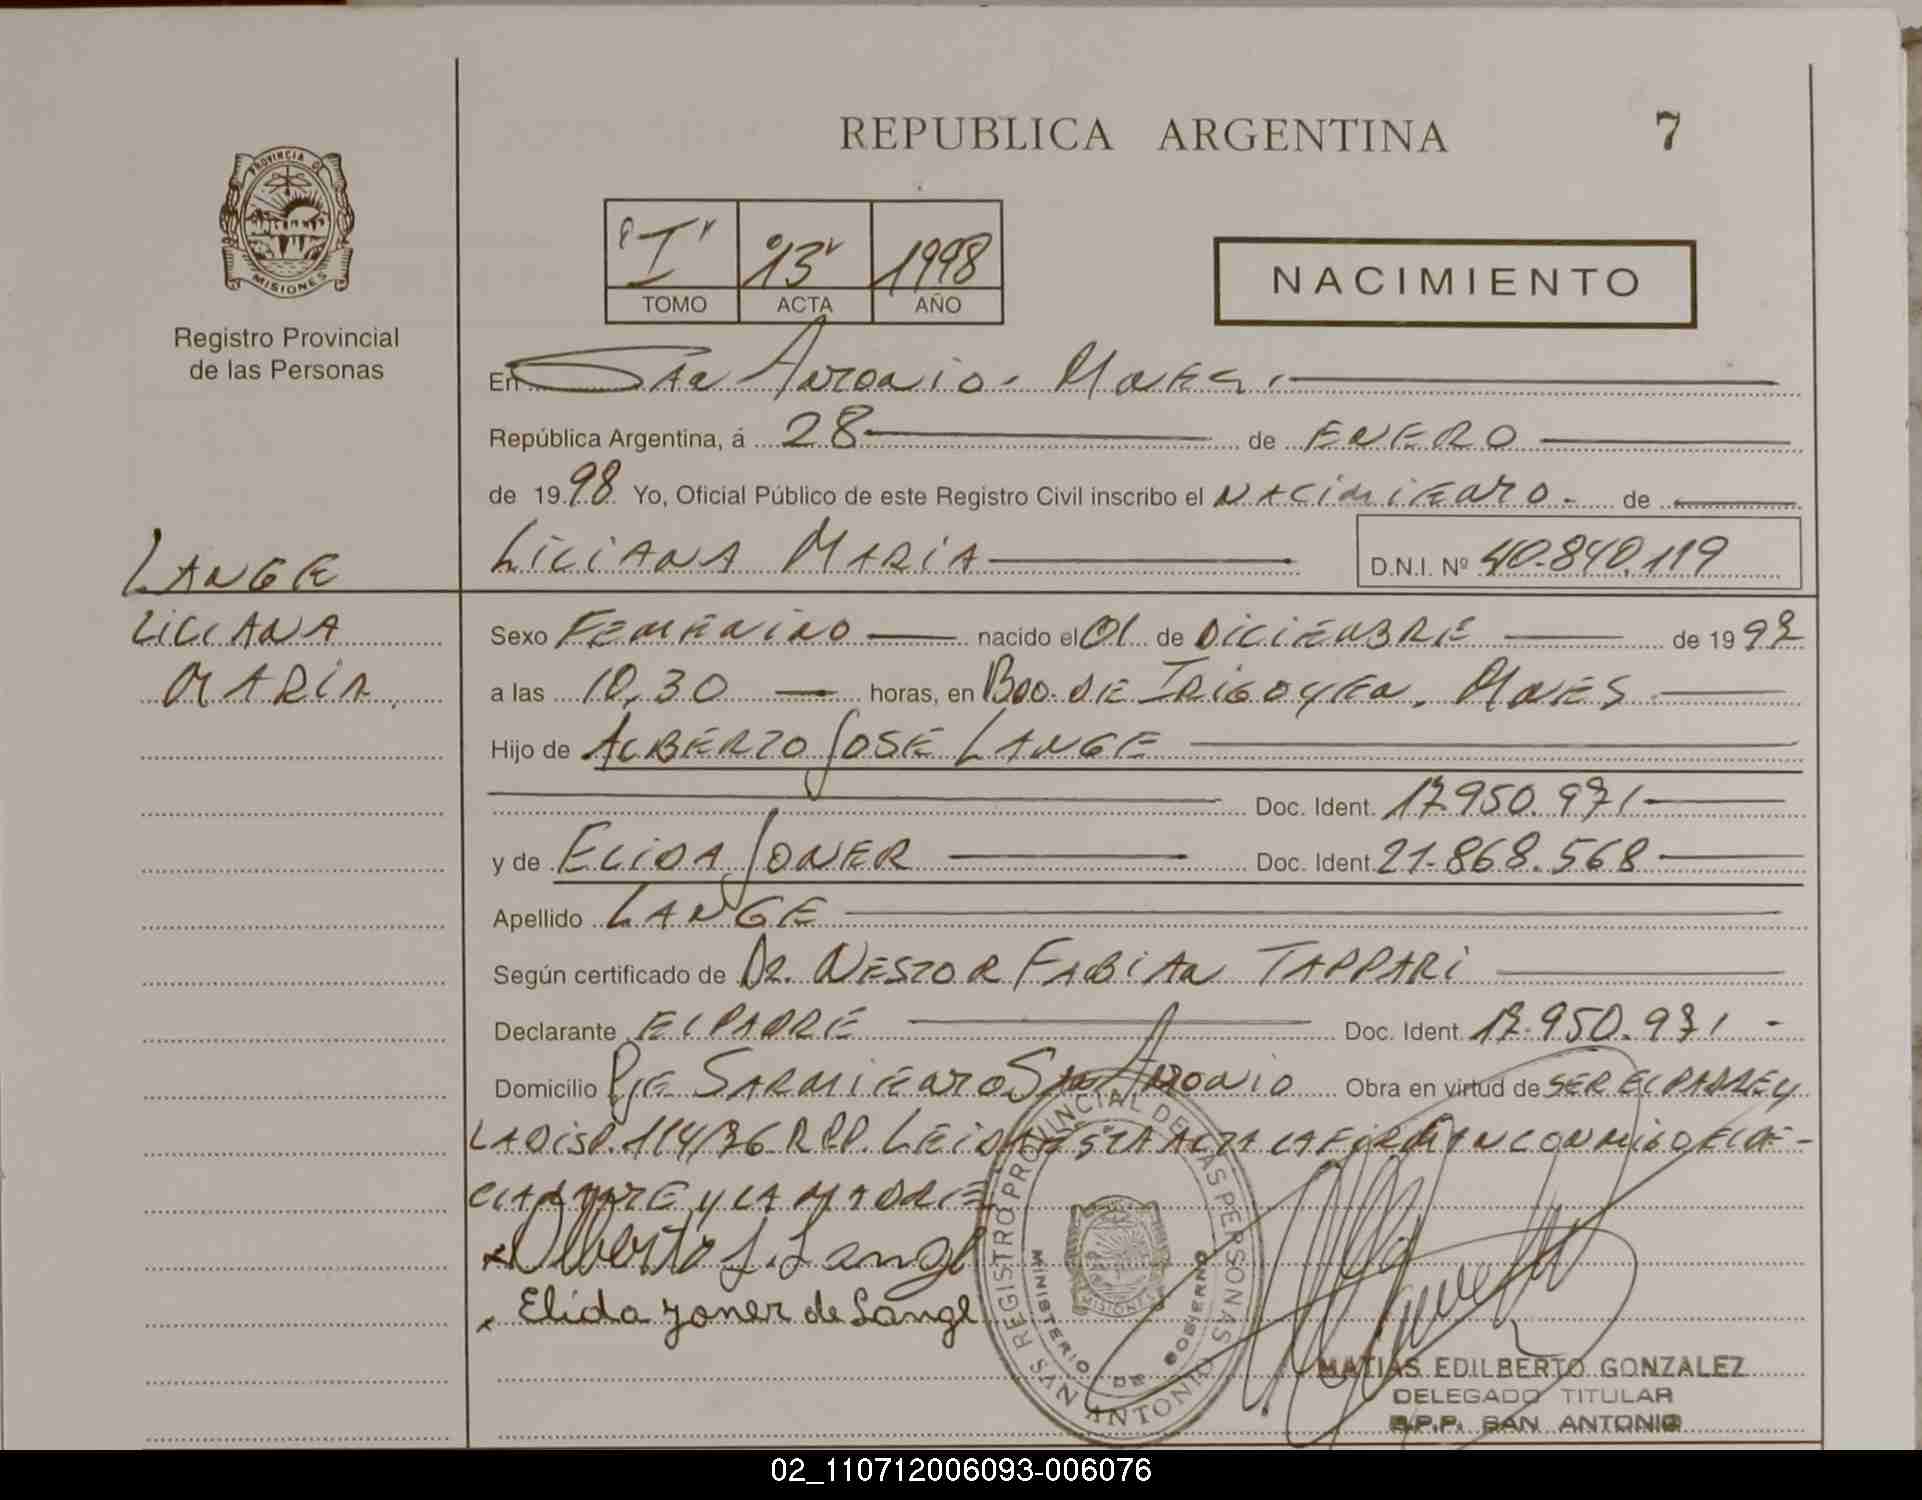 REPUBLICA ARGENTINA
7
PROVINCIA DE
MISIONES
Registro Provincial
de las Personas
"I" "13" 1998
TOMO ACTA AÑO
NACIMIENTO
En San Antonio - Mnes.
República Argentina, á 28 de ENERO
de 1998 Yo, Oficial Público de este Registro Civil inscribo el NACIMIENTO.- de
LILIANA MARIA D.N.I. Nº 40.840.119
LANGE
LILIANA
MARIA
Sexo FEMENINO nacido el 01 de DICIEMBRE de 1997
a las 10,30 horas, en Bdo. DE IRIGOYEN. MNES
Hijo de ALBERTO JOSE LANGE
Doc. Ident. 17.950.971
y de ELIDA JONER Doc. Ident. 21.868.568
Apellido LANGE
Según certificado de DR. NESTOR FABIAN TAPPARI
Declarante EL PADRE Doc. Ident. 17.950.971 -
Domicilio Pje SARMIENTO San ANTONIO Obra en virtud de SER EL PADRE y
LA DISP. 114/76 R.P.P. LEIDA ESTA ACTA LA FIRMAN CONMIGO EL DE-
CLARANTE y LA MADRE
x Alberto J. Lange
x Elida Joner de Lange
REGISTRO PROVINCIAL DE LAS PERSONAS
MINISTERIO DE GOBIERNO
MISIONES
SAN ANTONIO
MATIAS EDILBERTO GONZALEZ
DELEGADO TITULAR
R.P.P. SAN ANTONIO
02_110712006093-006076